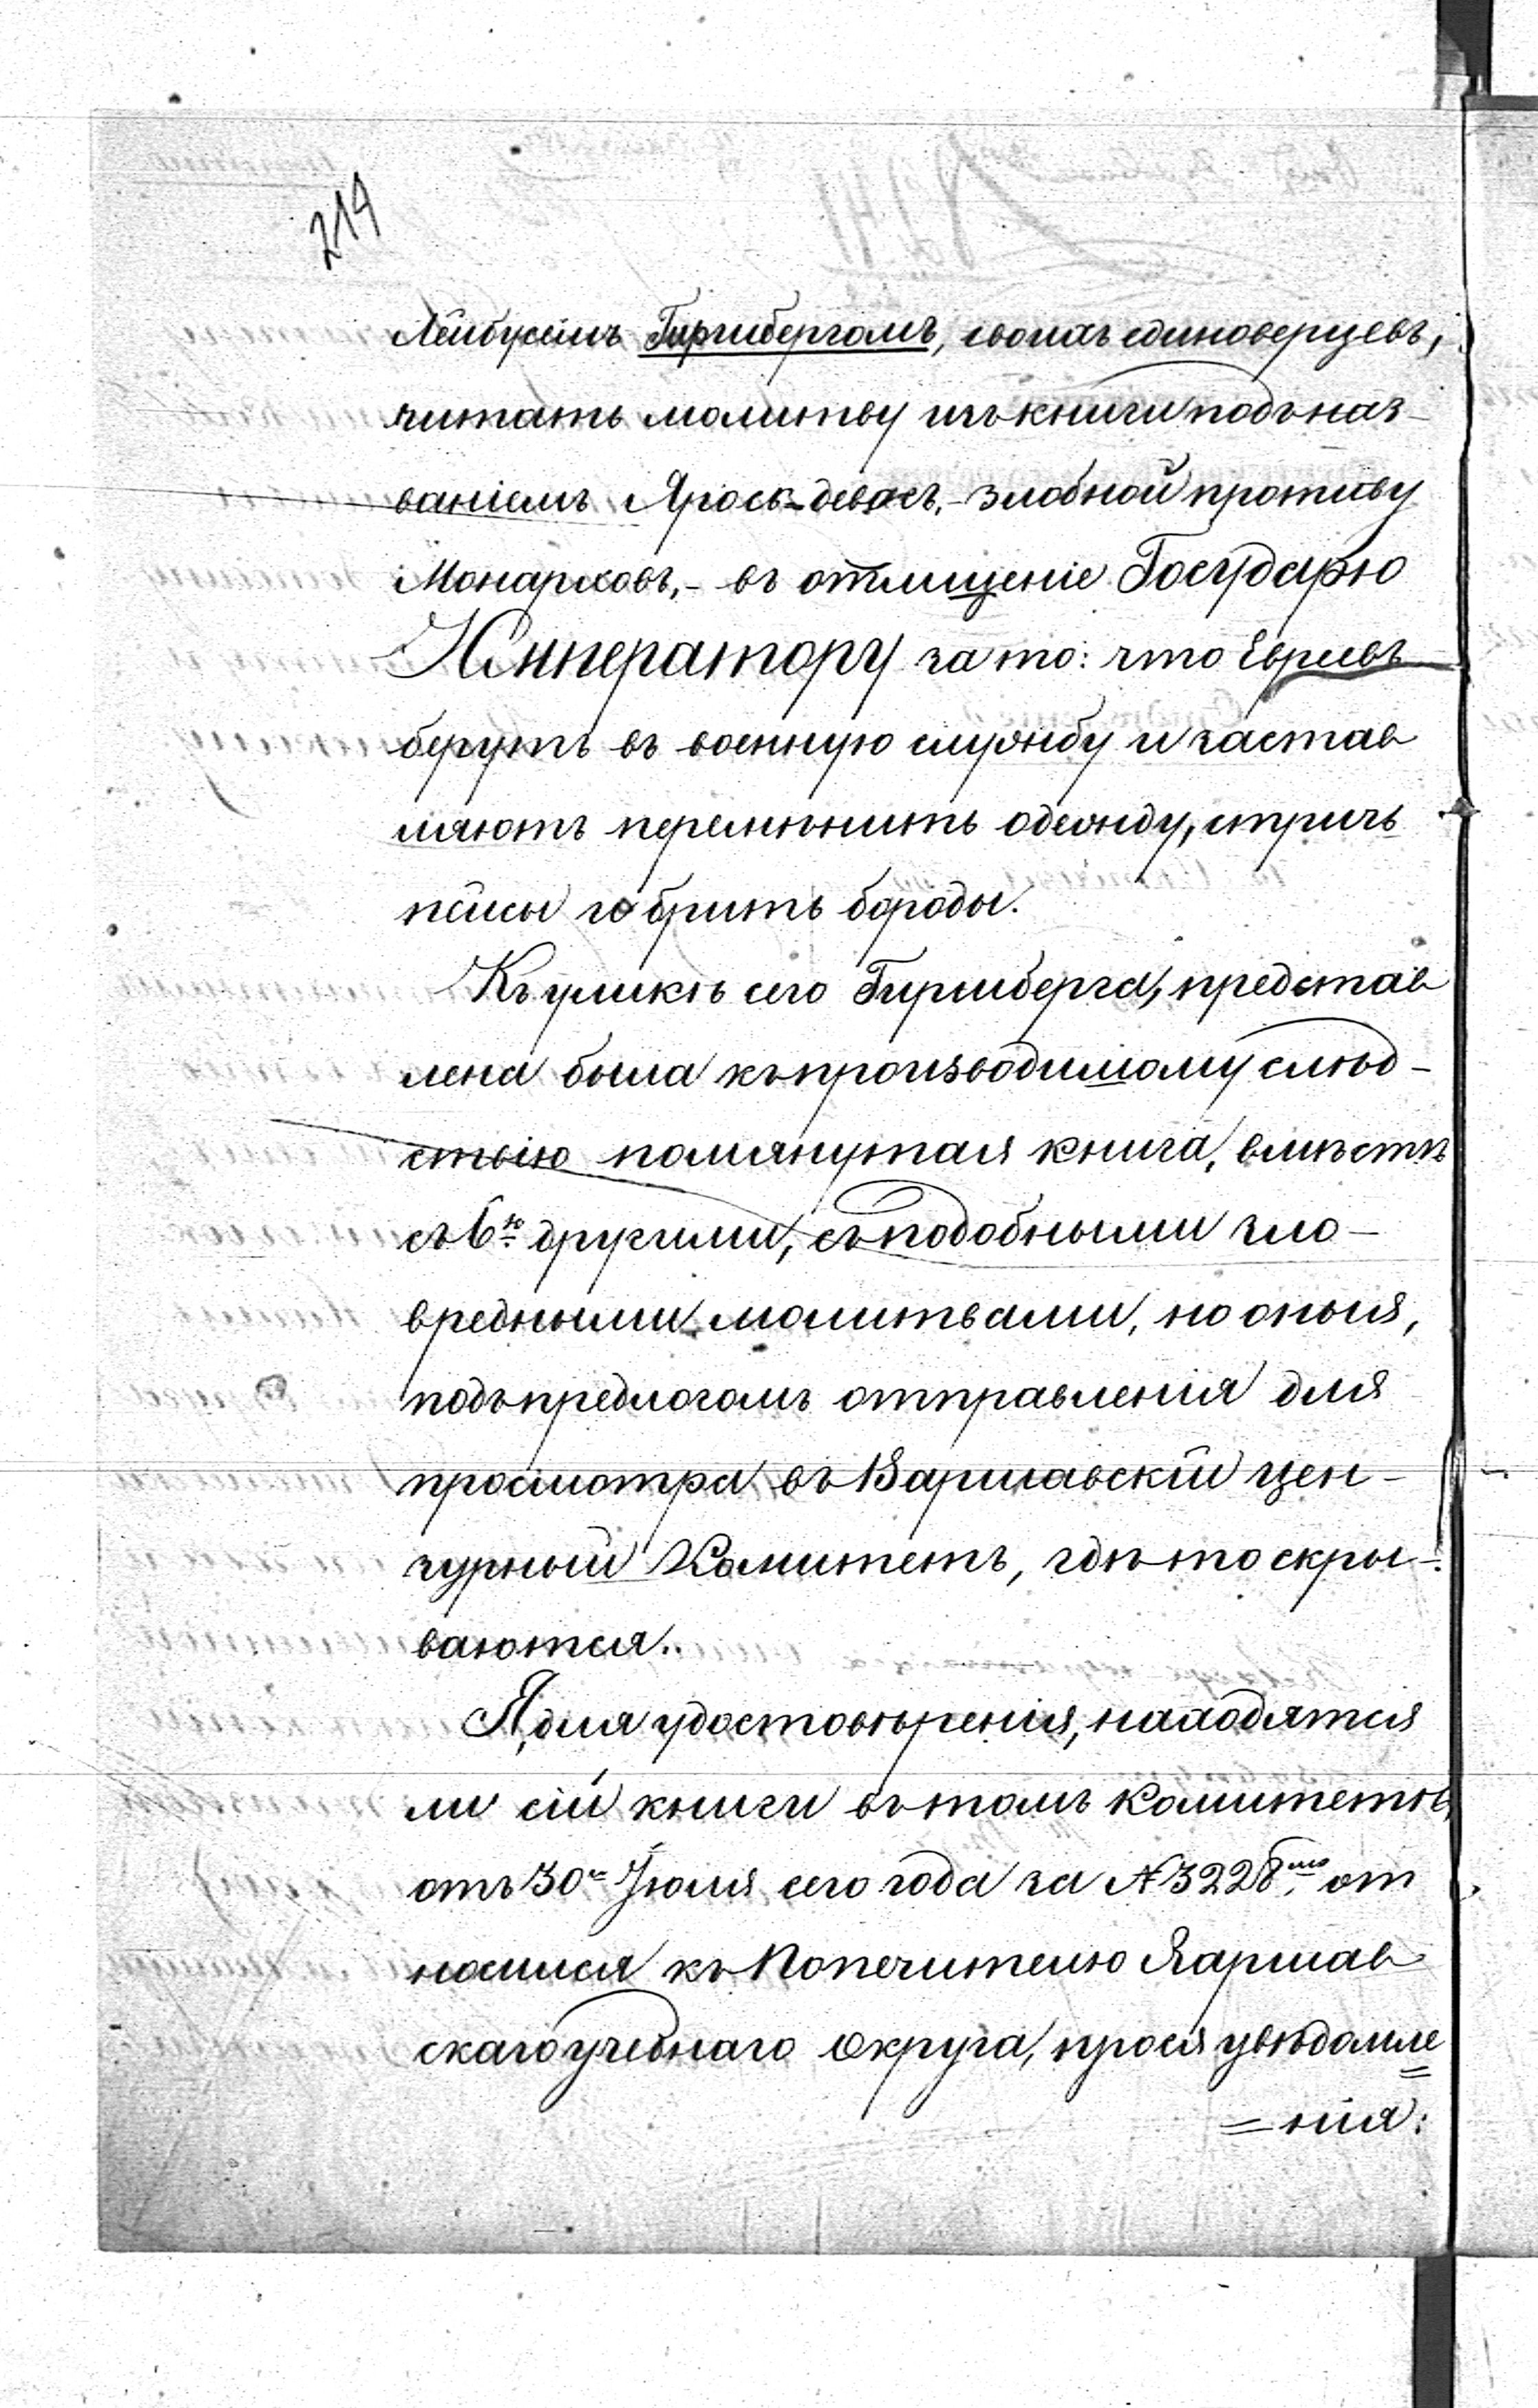 219
Лейбусемъ Гиршбергомъ, своихъ единоверцевъ,
читать молитву изъ книги подъ наз-
ваніемъ Яроск-девасъ,- злобной противу
Монарховъ,- въ отмщеніе Государю
Императору за то: что Евреевъ
берутъ въ военную службу и застав
ляютъ перемѣнить одежду, стричь
пейсы и брить бороды.
Къ уликѣ сего Гиршберга, представ
лена была къ производимому слѣд-
ствію помянутая книга, вмѣстѣ
съ 6ю другими, съ подобными зло-
вредными молитвами, но оныя,
подъ предлогомъ отправленія для
просмотра въ Варшавскій цен-
зурный Комитетъ, гдѣ то скры-
ваются.
Я, для удостовѣренія, находятся
ли сіи книги въ томъ Комитетѣ,
отъ 30го Іюля сего года за № 3228мъ от
носился къ Попечителю Варшав
скаго учебнаго Округа, прося увѣдомле
=нія: